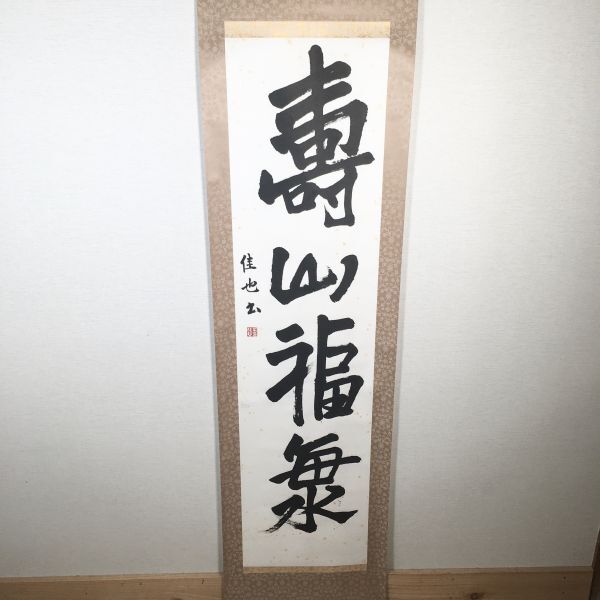 壽山福海
佳也书